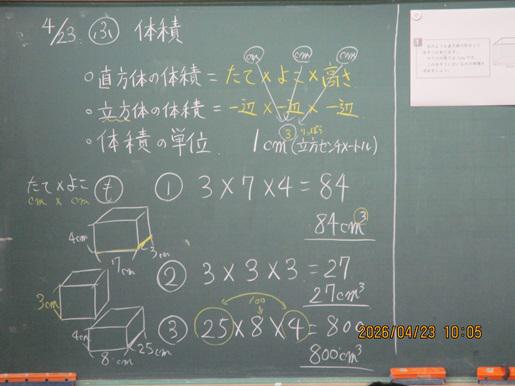 4/23 ふ 体積
cm cm cm
○直方体の体積＝たて×よこ×高さ
○立方体の体積＝一辺×一辺×一辺
○体積の単位 1cm³(立方センチメートル)
りっぽう
たて×よこ
cm × cm
も ① 3×7×4＝84
84cm³
4cm 7cm 3cm
② 3×3×3＝27
27cm³
3cm
100
③ 25×8×4＝800
800cm³
8cm 25cm
2026/04/23 10:05